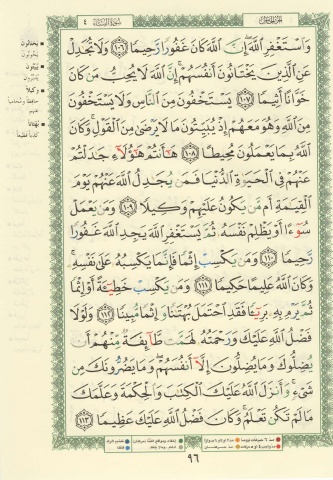 الجزء الخامس
سورة النساء ٤
وَاسْتَغْفِرِ اللَّهَ إِنَّ اللَّهَ كَانَ غَفُورًا رَّحِيمًا ١٠٦ وَلَا تُجَادِلْ
عَنِ الَّذِينَ يَخْتَانُونَ أَنفُسَهُمْ إِنَّ اللَّهَ لَا يُحِبُّ مَن كَانَ
خَوَّانًا أَثِيمًا ١٠٧ يَسْتَخْفُونَ مِنَ النَّاسِ وَلَا يَسْتَخْفُونَ
مِنَ اللَّهِ وَهُوَ مَعَهُمْ إِذْ يُبَيِّتُونَ مَا لَا يَرْضَىٰ مِنَ الْقَوْلِ وَكَانَ
اللَّهُ بِمَا يَعْمَلُونَ مُحِيطًا ١٠٨ هَا أَنتُمْ هَٰؤُلَاءِ جَادَلْتُمْ
عَنْهُمْ فِي الْحَيَاةِ الدُّنْيَا فَمَن يُجَادِلُ اللَّهَ عَنْهُمْ يَوْمَ
الْقِيَامَةِ أَم مَّن يَكُونُ عَلَيْهِمْ وَكِيلًا ١٠٩ وَمَن يَعْمَلْ
سُوءًا أَوْ يَظْلِمْ نَفْسَهُ ثُمَّ يَسْتَغْفِرِ اللَّهَ يَجِدِ اللَّهَ غَفُورًا
رَّحِيمًا ١١٠ وَمَن يَكْسِبْ إِثْمًا فَإِنَّمَا يَكْسِبُهُ عَلَىٰ نَفْسِهِ
وَكَانَ اللَّهُ عَلِيمًا حَكِيمًا ١١١ وَمَن يَكْسِبْ خَطِيئَةً أَوْ إِثْمًا
ثُمَّ يَرْمِ بِهِ بَرِيئًا فَقَدِ احْتَمَلَ بُهْتَانًا وَإِثْمًا مُّبِينًا ١١٢ وَلَوْلَا
فَضْلُ اللَّهِ عَلَيْكَ وَرَحْمَتُهُ لَهَمَّت طَّائِفَةٌ مِّنْهُمْ أَن
يُضِلُّوكَ وَمَا يُضِلُّونَ إِلَّا أَنفُسَهُمْ وَمَا يَضُرُّونَكَ مِن
شَيْءٍ وَأَنزَلَ اللَّهُ عَلَيْكَ الْكِتَابَ وَالْحِكْمَةَ وَعَلَّمَكَ
مَا لَمْ تَكُن تَعْلَمُ وَكَانَ فَضْلُ اللَّهِ عَلَيْكَ عَظِيمًا ١١٣
يختانون
يخونون
يبيتون
يدبرون
وكيلا
بهتانا
كذبا فظيعا
٩٦